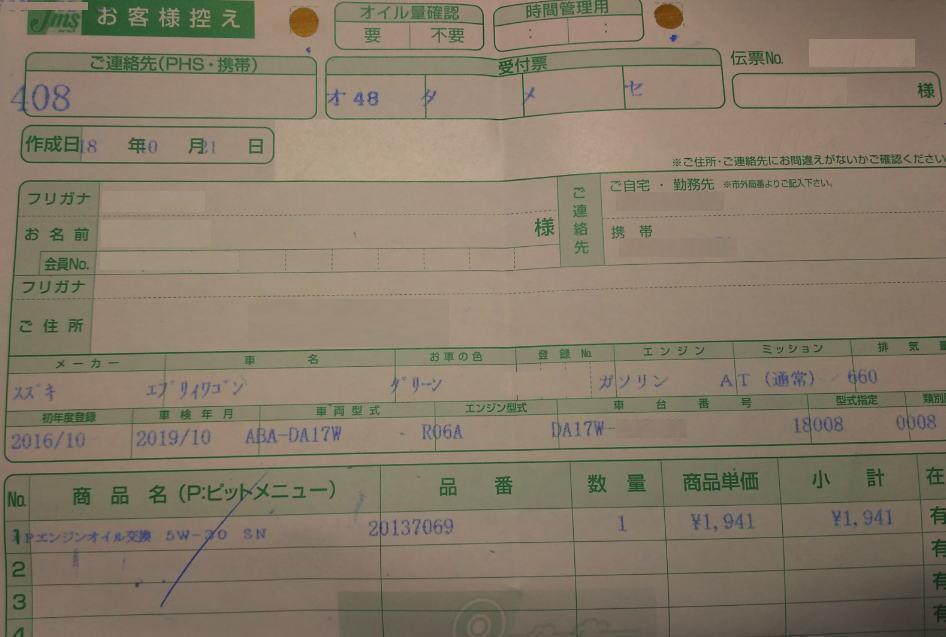 Jms お客様控え
オイル量確認
要 不要
時間管理用
: :
ご連絡先(PHS・携帯)
408
受付票
オ48 タ メ セ
伝票No.
様
作成日 18 年 10 月 21 日
※ご住所・ご連絡先にお間違えがないかご確認ください
フリガナ
お名前 様
会員No.
ご連絡先
ご自宅・勤務先 ※市外局番よりご記入下さい。
携帯
フリガナ
ご住所
メーカー 車名 お車の色 登録No. エンジン ミッション 排気量
スズキ エブリイワゴン グリーン ガソリン AT (通常) 660
初年度登録 車検年月 車両型式 エンジン型式 車台番号 型式指定 類別
2016/10 2019/10 ABA-DA17W - R06A DA17W- 18008 0008
No. 商品名(P:ピットメニュー) 品番 数量 商品単価 小計 在
1 Pエンジンオイル交換 5W-30 SN 20137069 1 ¥1,941 ¥1,941 有
2 有
3 有
4 有